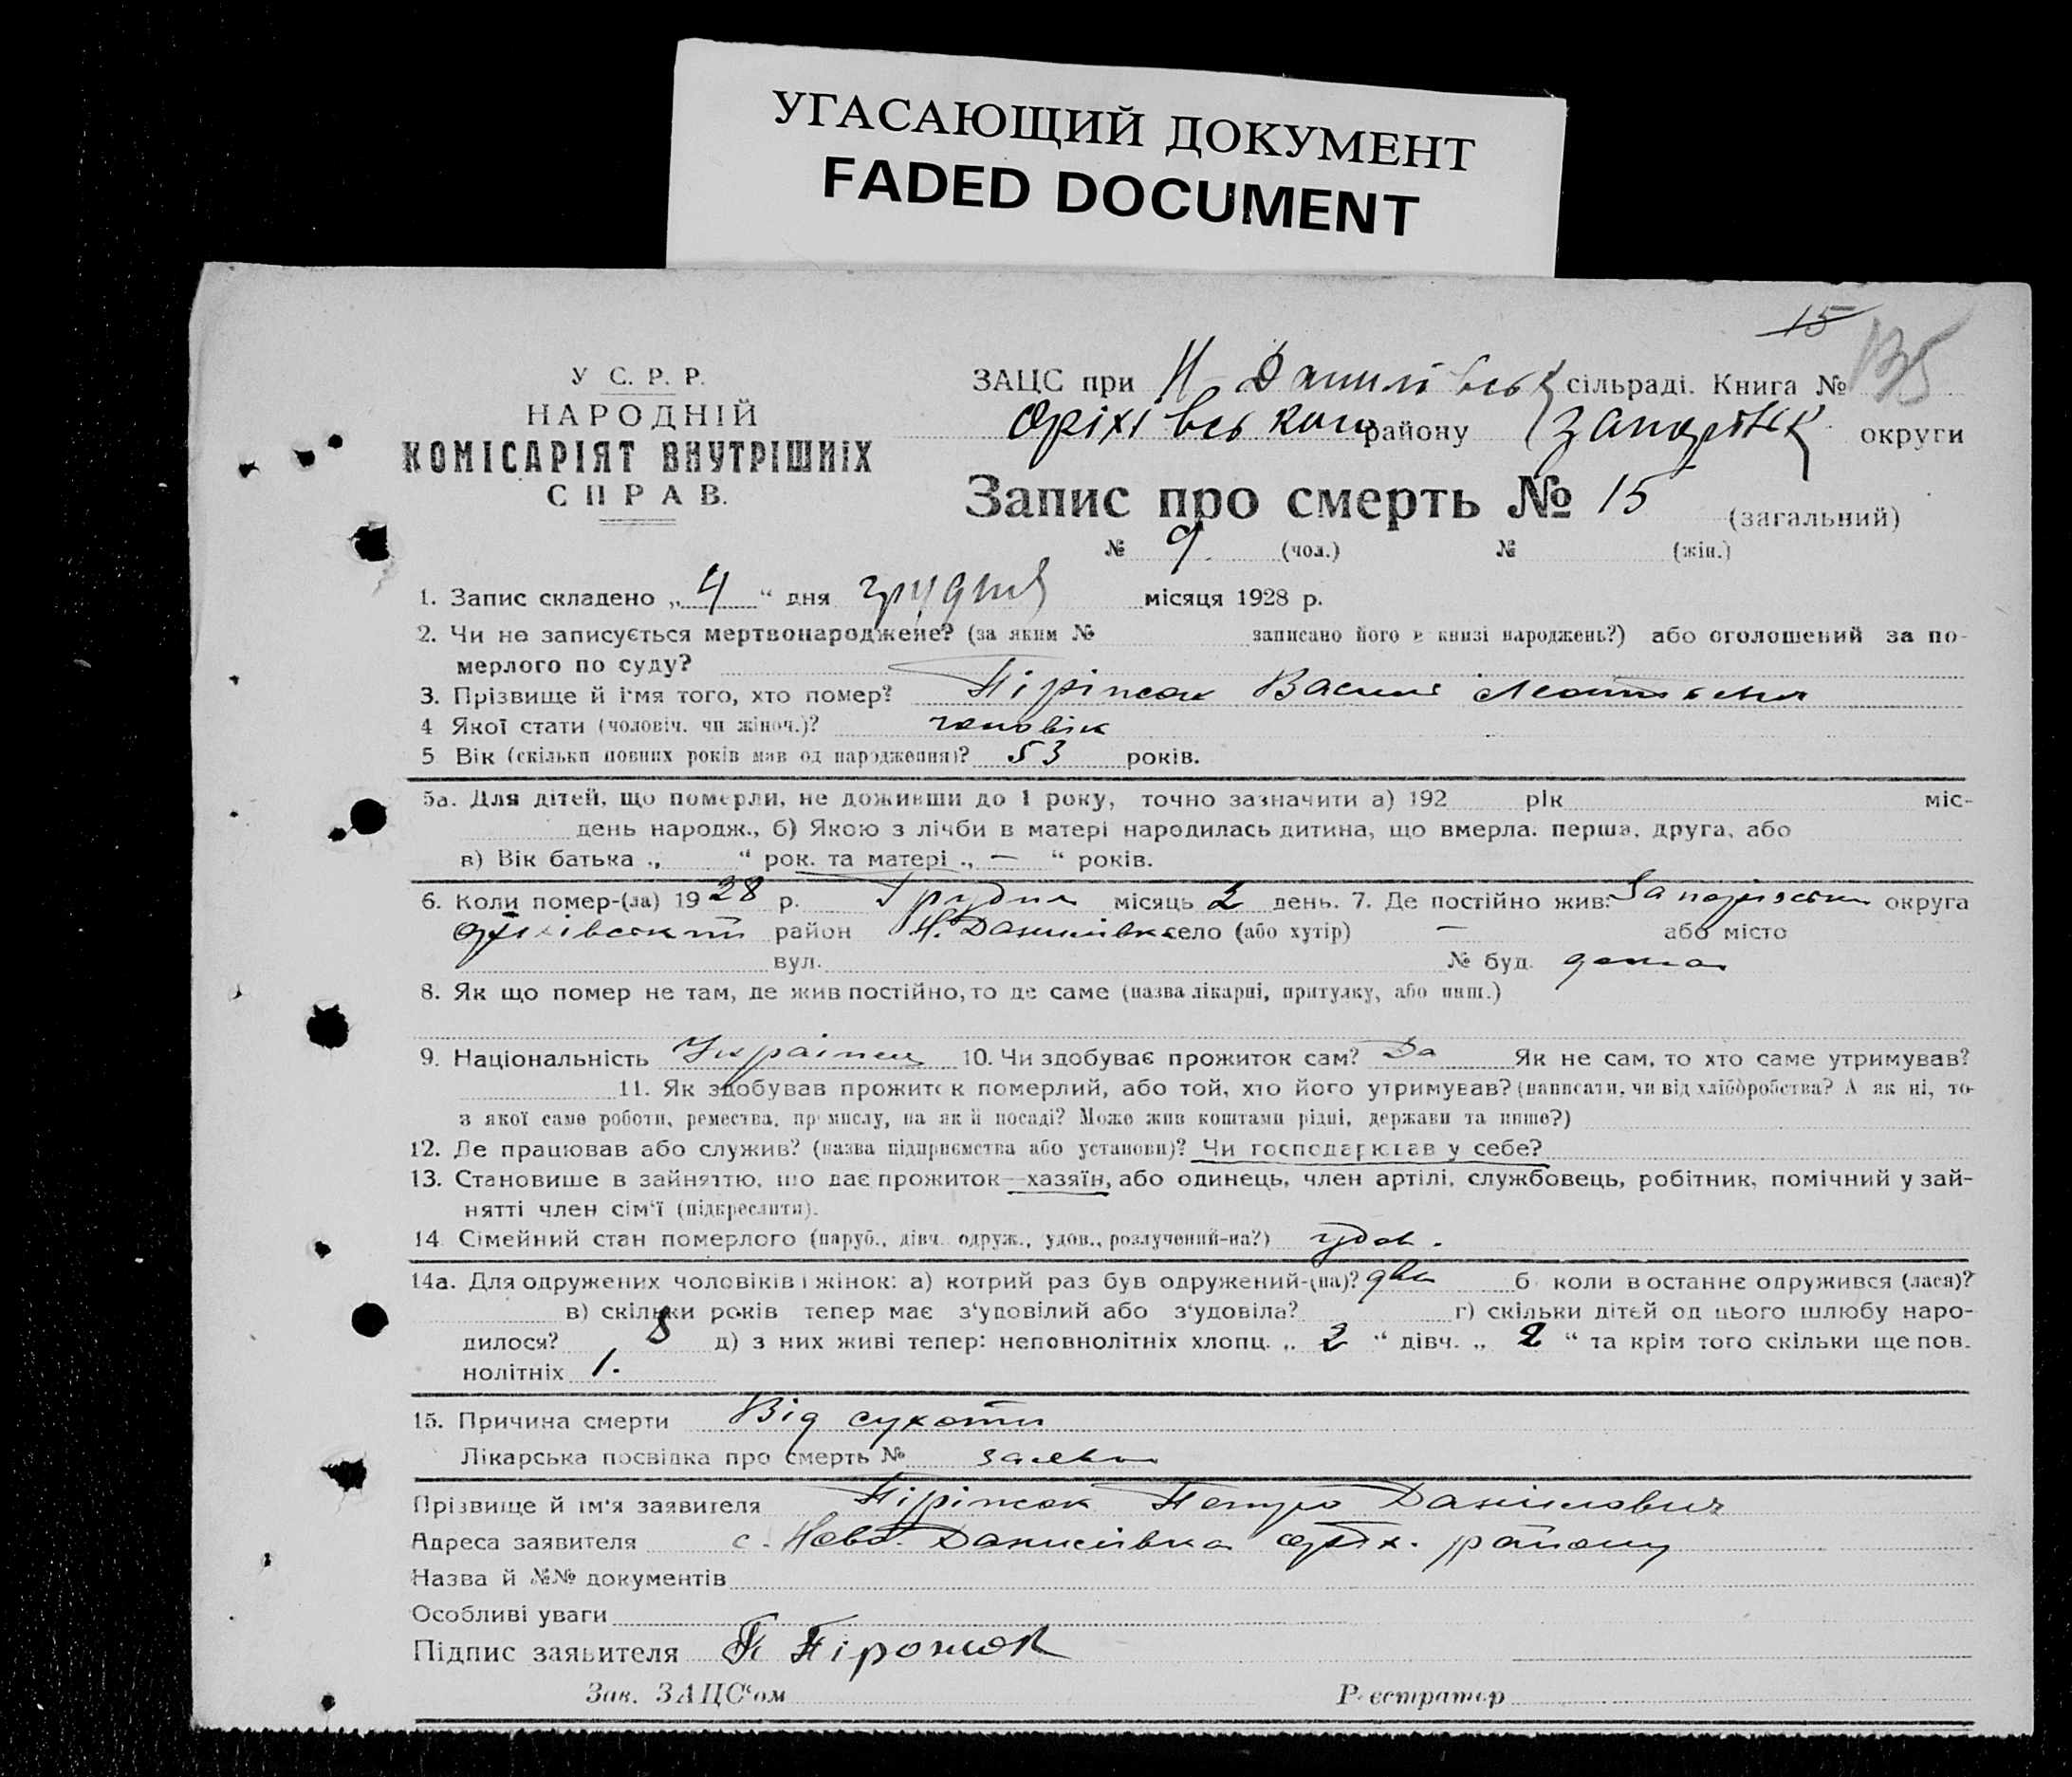 УГАСАЮЩИЙ ДОКУМЕНТ
FADED DOCUMENT
15
135
У С. Р. Р.
НАРОДНІЙ
КОМІСАРІЯТ ВНУТРІШНІХ
СПРАВ.
ЗАЦС при Н Данилівськ сільраді. Книга №
Оріхівського району Запоріжк округи
Запис про смерть № 15 (загальний)
№ 9 (чол.) № (жін.)
1. Запис складено „4“ дня грудня місяця 1928 р.
2. Чи не записується мертвонароджене? (за яким № записано його в книзі народжень?) або оголошений за по-
мерлого по суду?
3. Прізвище й ім'я того, хто помер? Василь
4 Якої стати (чоловіч. чи жіноч.)? чоловік
5 Вік (скільки повних років мав од народження)? 53 років.
5а. Для дітей, що померли, не доживши до 1 року, точно зазначити а) 192 рік міс-
день народж., б) Якою з лічби в матері народилась дитина, що вмерла. перша, друга, або
в) Вік батька „ “ рок. та матері „ — “ років.
6. Коли помер-(ла) 1928 р. Грудня місяць 2 день. 7. Де постійно жив: Запорізська округа
Оріхівський район Н. Данилівка село (або хутір) — або місто
вул. № буд. дома
8. Як що помер не там, де жив постійно, то де саме (назва лікарні, притулку, або инш.)
9. Національність Українец 10. Чи здобуває прожиток сам? Да Як не сам, то хто саме утримував?
11. Як здобував прожиток померлий, або той, хто його утримував? (написати, чи від хліборобства? А як ні, то
з якої саме роботи, ремества, промислу, на якій посаді? Може жив коштами рідні, держави та инше?)
12. Де працював або служив? (назва підприємства або установи)? Чи господарював у себе?
13. Становише в зайняттю, що дає прожиток—хазяїн, або одинець, член артілі, службовець, робітник, помічний у зай-
нятті член сім'ї (підкреслити).
14 Сімейний стан померлого (паруб., дівч. одруж., удов., розлучений-на?) удов.
14а. Для одружених чоловіків і жінок: а) котрий раз був одружений-(на)? два б коли востаннє одружився (лася)?
в) скільки років тепер має з'удовілий або з'удовіла? г) скільки дітей од цього шлюбу наро-
дилося? 8 д) з них живі тепер: неповнолітніх хлопц. „ 2 “ дівч. „ 2 “ та крім того скільки ще пов.
нолітніх 1.
15. Причина смерти Від сухоти
Лікарська посвідка про смерть №
Прізвище й ім'я заявителя Петро Данилович
Адреса заявителя с. Ново Данилівка Оріх. району
Назва й №№ документів
Особливі уваги
Підпис заявителя П Піронжок
Зав. ЗАЦС'ом Реєстратор